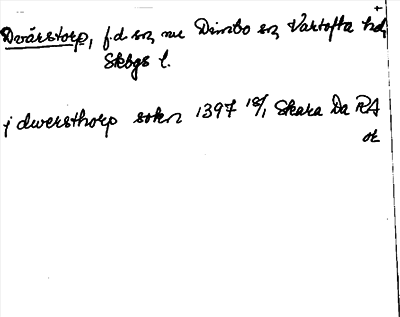 +
Dvärstorp, f.d sn, nu Dimbo sn Vartofta hd,
Skbgs l.
j dwersthorp sokn 1397 18/1 Skara Da RA
or